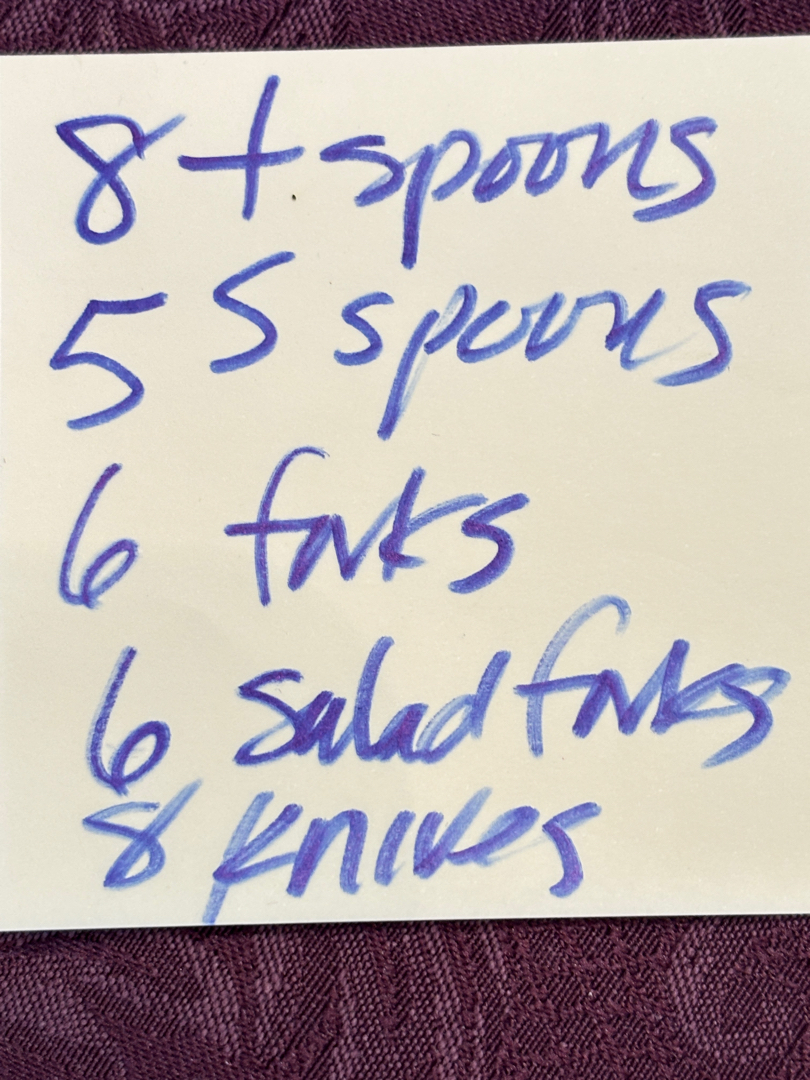 8 t spoons
5 S spoons
6 forks
6 salad forks
8 knives